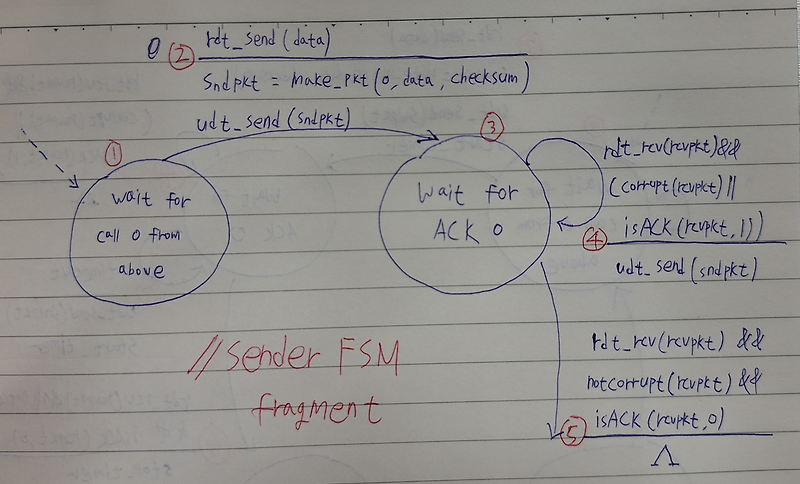 0 ② rdt_send(data)
sndpkt = make_pkt(0, data, checksum)
udt_send(sndpkt)
①
wait for
call 0 from
above
③
Wait for
ACK 0
rdt_rcv(rcvpkt)&&
(corrupt(rcvpkt)||
④ isACK(rcvpkt,1))
udt_send(sndpkt)
rdt_rcv(rcvpkt) &&
notcorrupt(rcvpkt) &&
⑤ isACK(rcvpkt,0)
Λ
//sender FSM
fragment